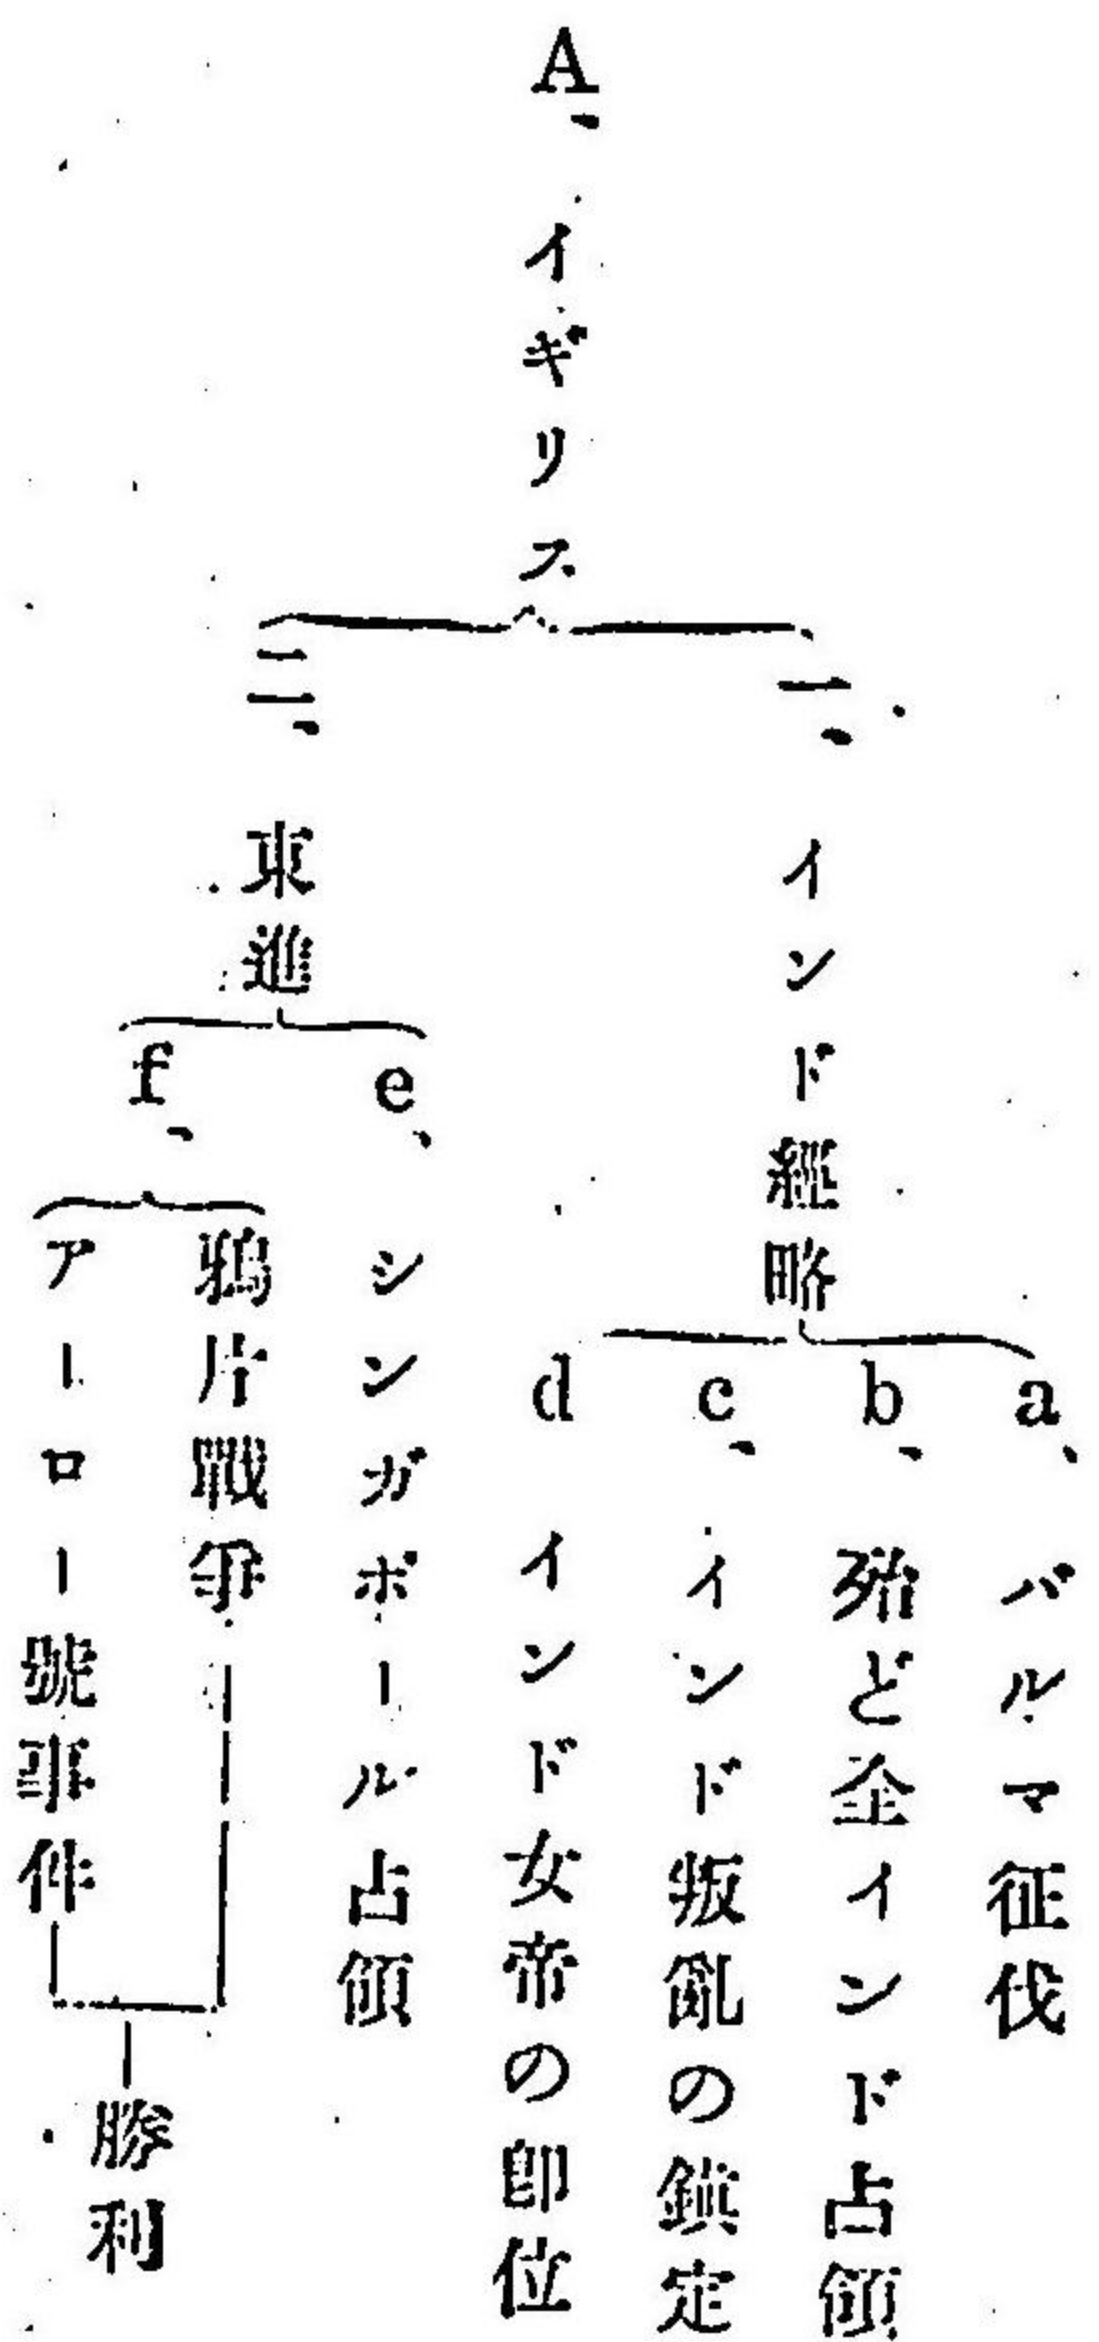 A、イギリス
一、インド經略
a、バルマ征伐
b、殆ど全インド占領
c、インド叛亂の鎭定
d インド女帝の卽位
二、東進
e、シンガポール占領
f、
鴉片戰爭
アーロー號事件
勝利